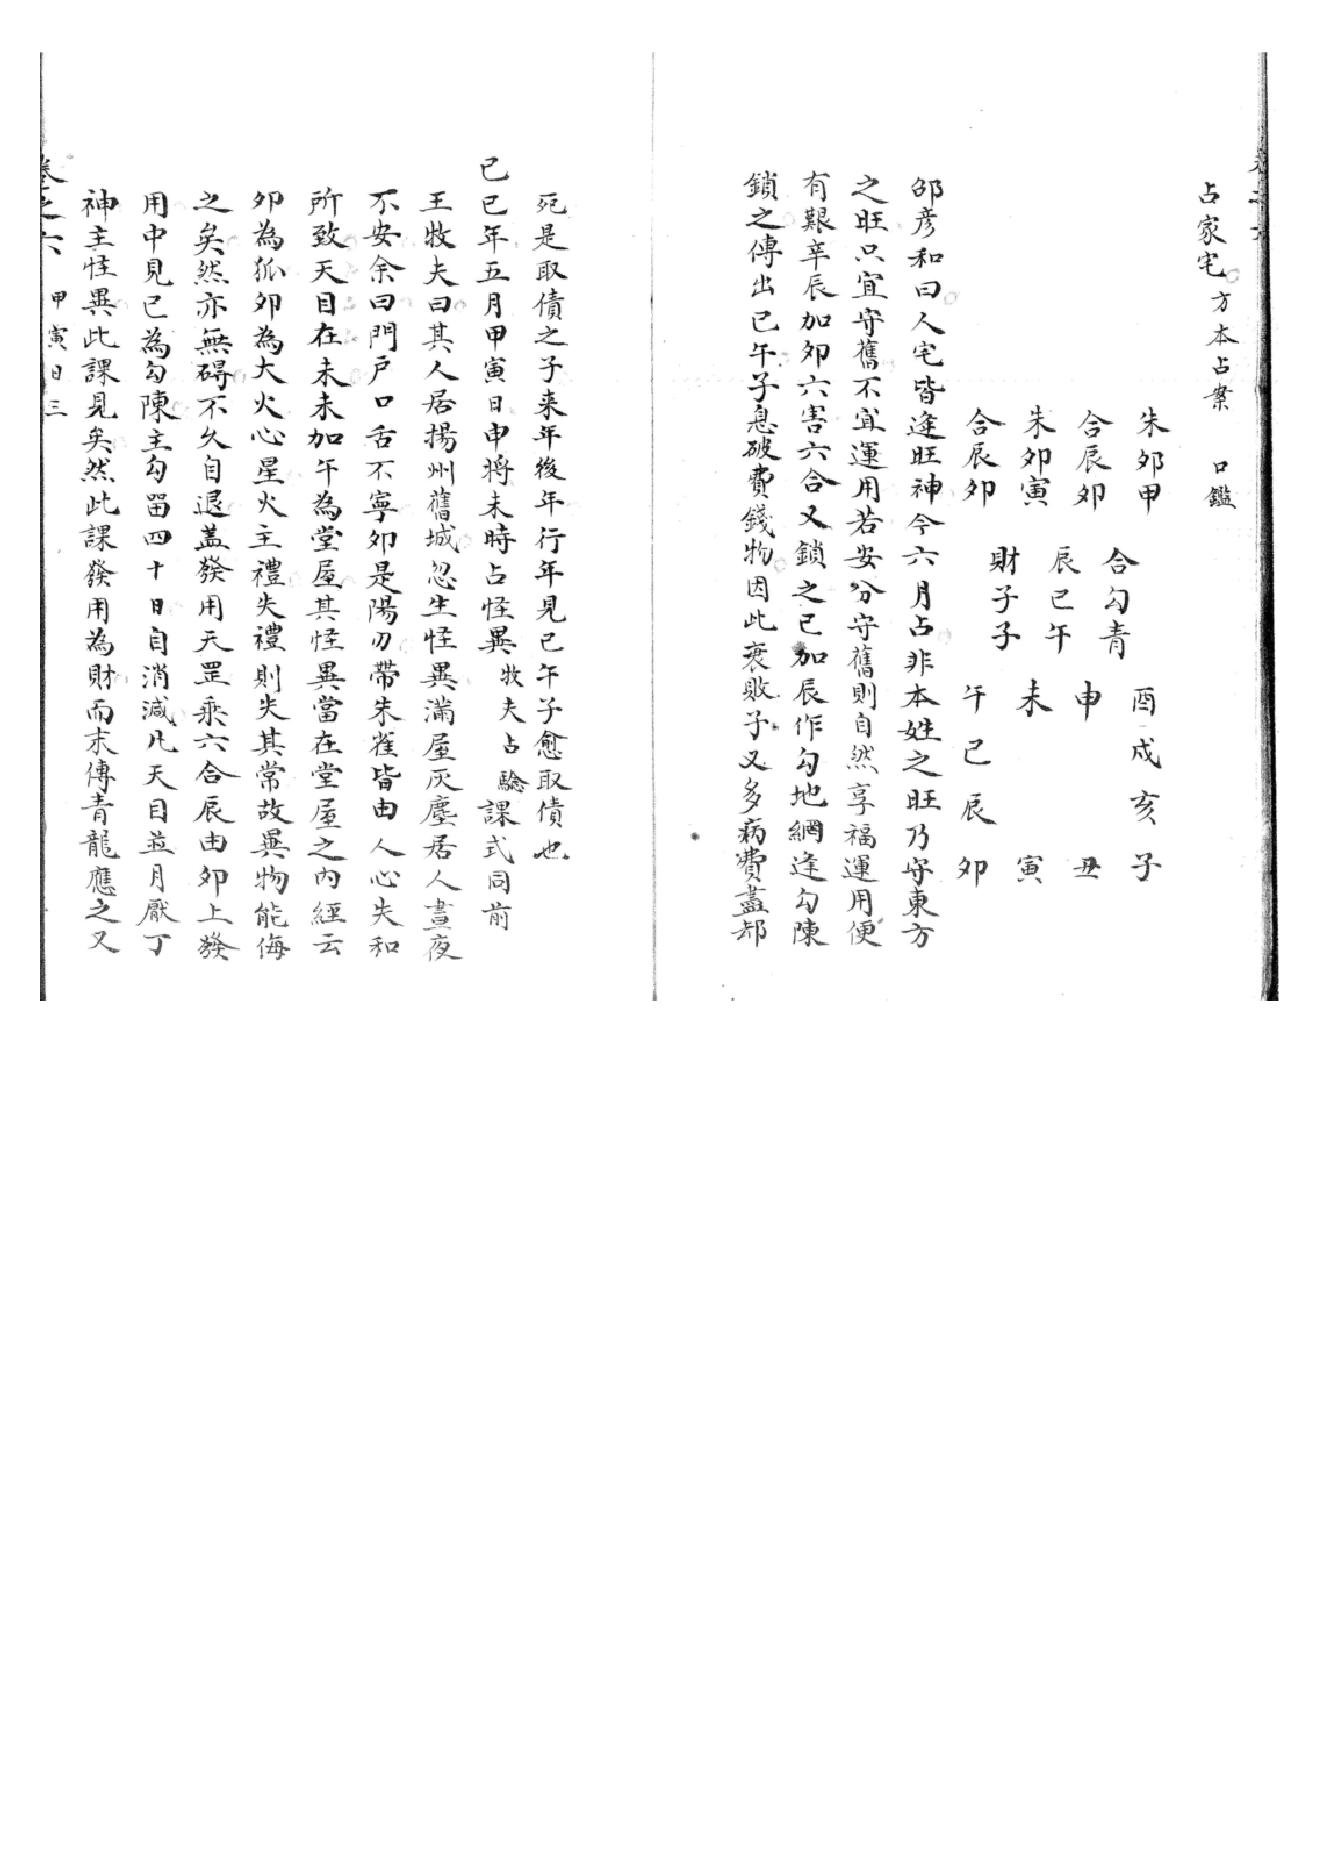 占家宅 方本占案 口鑑
朱 合 朱 合
卯 辰 卯 辰
甲 卯 寅 卯
合 辰 財
勾 巳 子
青 午 子
酉 申 未 午
戌 巳
亥 辰
子 丑 寅 卯
邵彦和曰人宅皆逢旺神今六月占非本姓之旺乃守東方
之旺只宜守舊不宜運用若安分守舊則自然享福運用便
有艱辛辰加卯六害六合又鎖之巳加辰作勾地網逢勾陳
鎖之傳出巳午子息破費錢物因此衰敗子又多病費盡却
死是取債之子来年後年行年見巳午子愈取債也
己巳年五月甲寅日申將未時占怪異 牧夫占驗 課式同前
王牧夫曰其人居揚州舊城忽生怪異滿屋灰塵居人晝夜
不安余曰門户口舌不寧卯是陽刃帶朱雀皆由人心失和
所致天目在未未加午為堂屋其怪異當在堂屋之内經云
卯為狐卯為大火心星火主禮失禮則失其常故異物能侮
之矣然亦無碍不久自退盖發用天罡乘六合辰由卯上發
用中見巳為勾陳主勾留四十日自消滅凡天目並月厭丁
神主怪異此課見矣然此課發用為財而末傳青龍應之又
卷之六 甲寅日 三